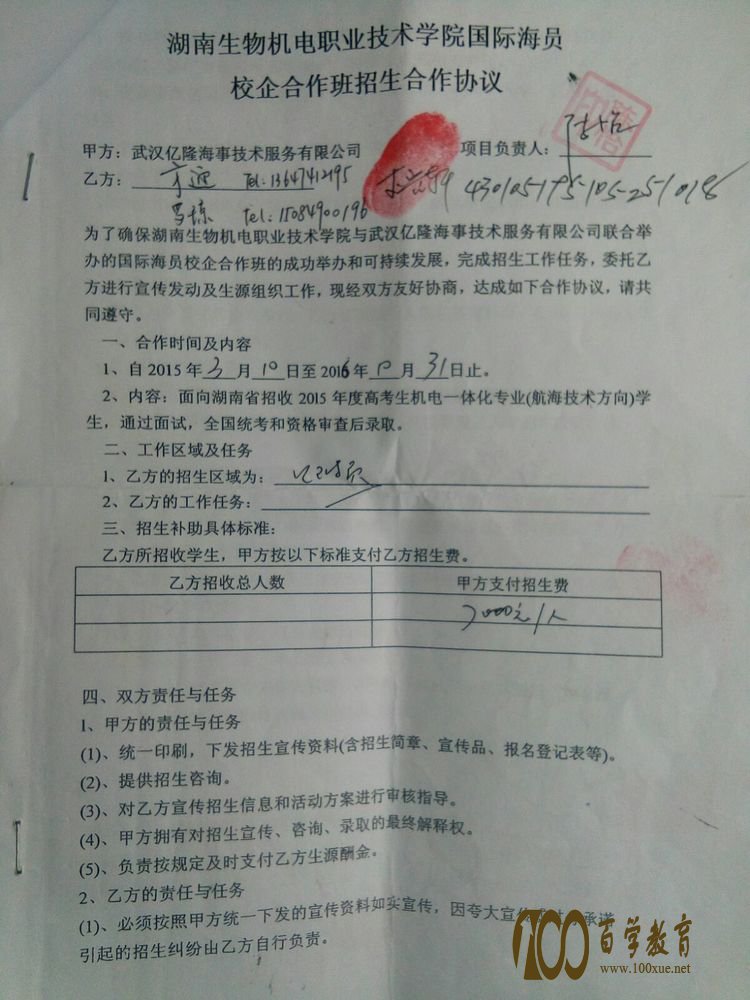 湖南生物机电职业技术学院国际海员
校企合作班招生合作协议
甲方：武汉亿隆海事技术服务有限公司 项目负责人：
乙方： Tel:13647412195 430105195105251018
Tel:15084900196
为了确保湖南生物机电职业技术学院与武汉亿隆海事技术服务有限公司联合举
办的国际海员校企合作班的成功举办和可持续发展，完成招生工作任务，委托乙
方进行宣传发动及生源组织工作，现经双方友好协商，达成如下合作协议，请共
同遵守。
一、合作时间及内容
1、自 2015 年 3 月 10 日至 2016 年 10 月 31 日止。
2、内容：面向湖南省招收 2015 年度高考生机电一体化专业(航海技术方向)学
生，通过面试，全国统考和资格审查后录取。
二、工作区域及任务
1、乙方的招生区域为：
2、乙方的工作任务：
三、招生补助具体标准：
乙方所招收学生，甲方按以下标准支付乙方招生费。
乙方招收总人数 甲方支付招生费
7000元/人
四、双方责任与任务
1、甲方的责任与任务
(1)、统一印刷，下发招生宣传资料(含招生简章、宣传品、报名登记表等)。
(2)、提供招生咨询。
(3)、对乙方宣传招生信息和活动方案进行审核指导。
(4)、甲方拥有对招生宣传、咨询、录取的最终解释权。
(5)、负责按规定及时支付乙方生源酬金。
2、乙方的责任与任务
(1)、必须按照甲方统一下发的宣传资料如实宣传，因夸大宣传 承诺
引起的招生纠纷由乙方自行负责。
100百学教育
www.100xue.net